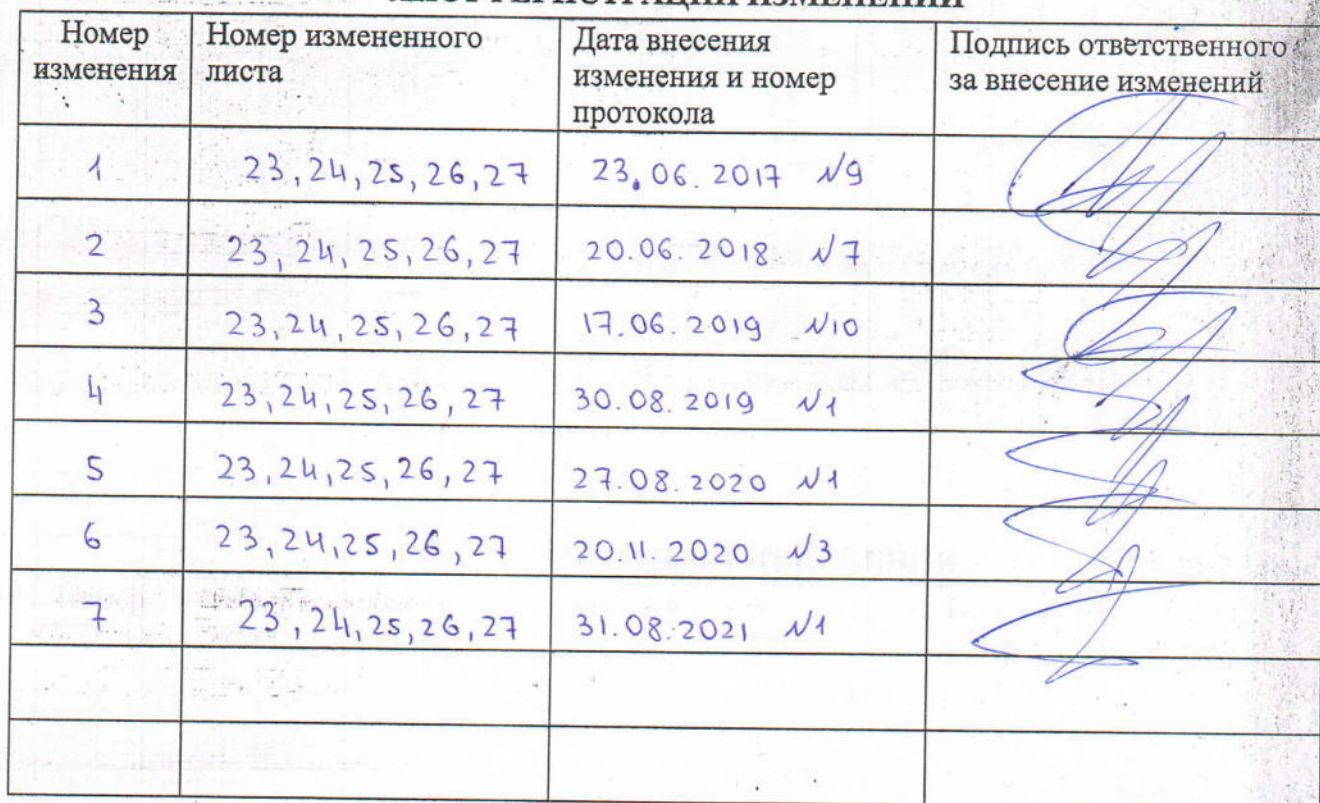 ЛИСТ РЕГИСТРАЦИИ ИЗМЕНЕНИЙ
Номер изменения Номер измененного листа Дата внесения изменения и номер протокола Подпись ответственного за внесение изменений
1 23, 24, 25, 26, 27 23.06.2017 №9
2 23, 24, 25, 26, 27 20.06.2018 №7
3 23, 24, 25, 26, 27 17.06.2019 №10
4 23, 24, 25, 26, 27 30.08.2019 №1
5 23, 24, 25, 26, 27 27.08.2020 №1
6 23, 24, 25, 26, 27 20.11.2020 №3
7 23, 24, 25, 26, 27 31.08.2021 №1